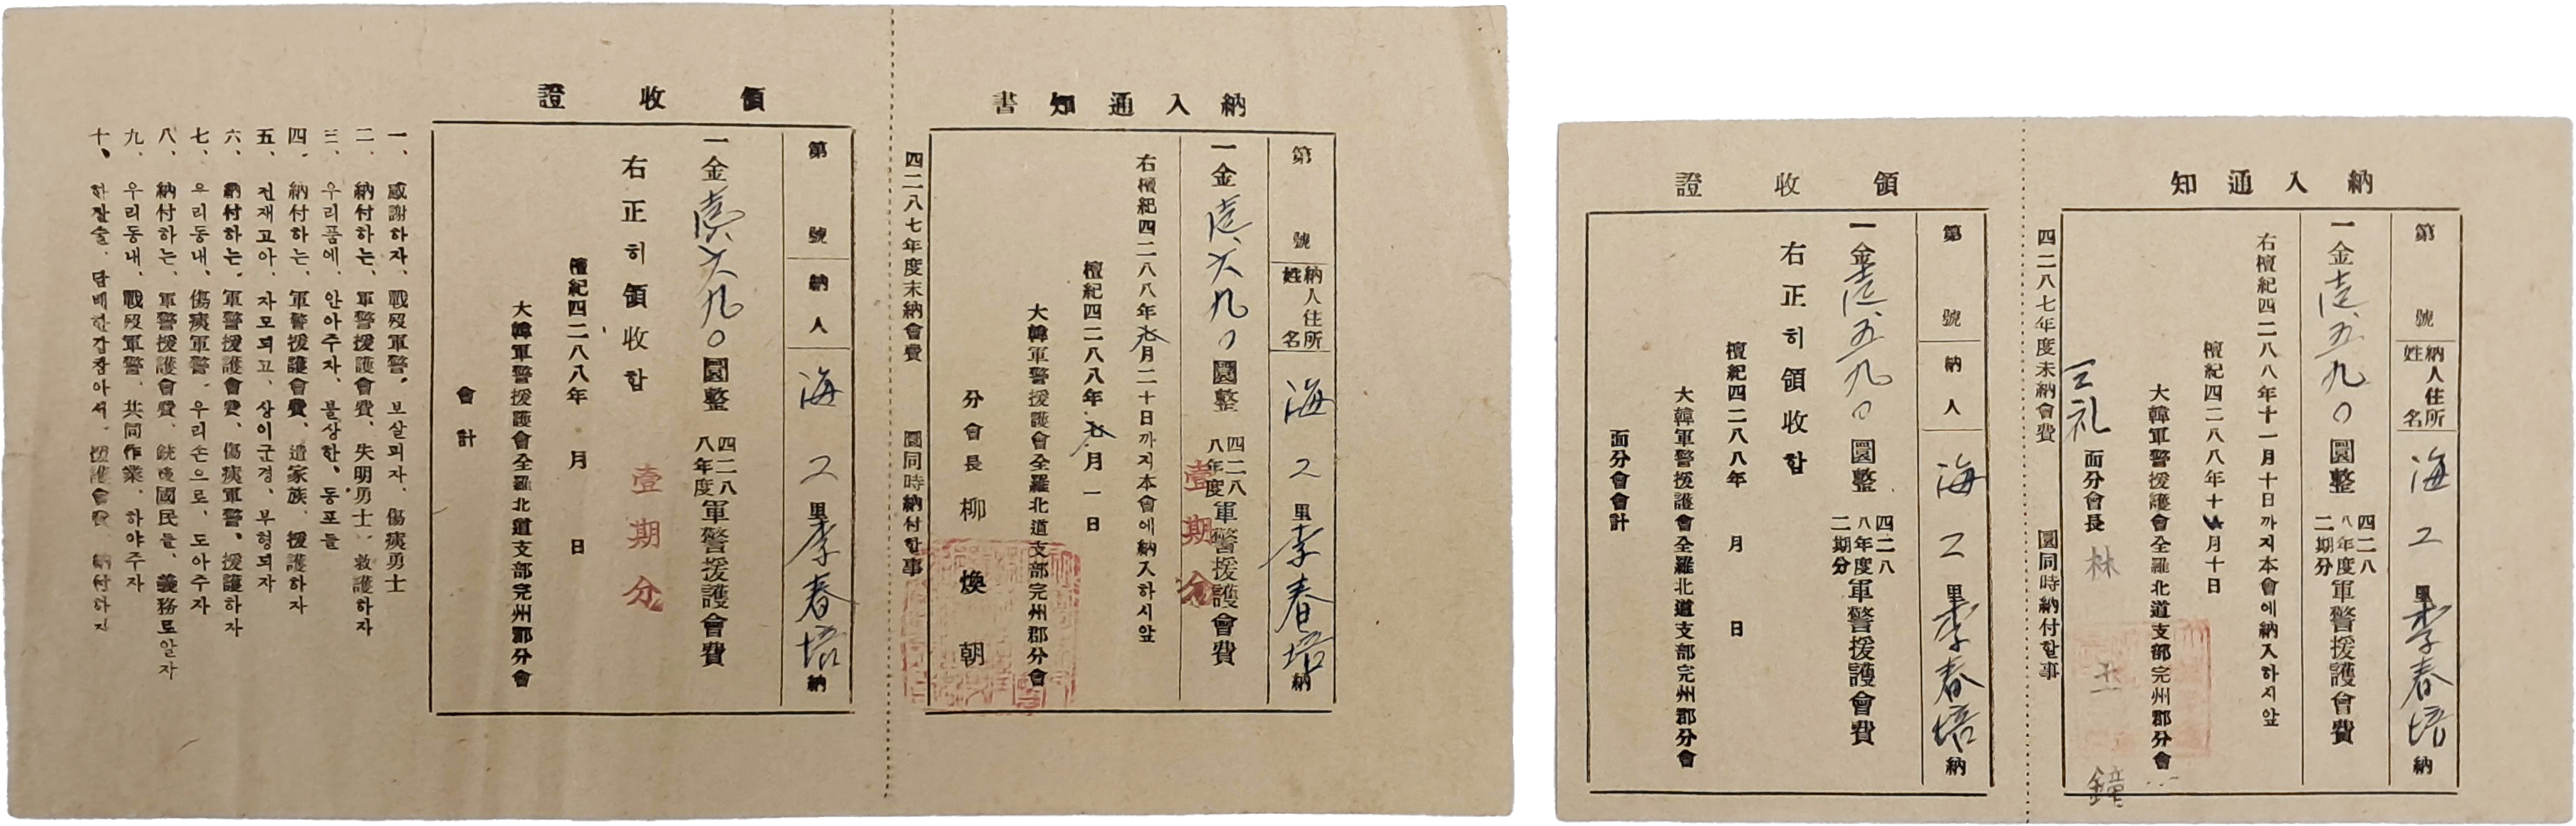 納入通知書
第 號
納人住所姓名
海 二 里 李春培 納
一金 壹、六九〇 圓整
四二八八年度 軍警援護會費
壹期分
右檀紀四二八八年 七月二十日까지本會에納入하시앞
檀紀四二八八年 七月 一日
大韓軍警援護會全羅北道支部完州郡分會
分會長 柳煥朝
四二八七年度末納會費 圓同時納付할事
領收證
第 號
納人 海 二 里 李春培 納
一金 壹、六九〇 圓整
四二八八年度 軍警援護會費
壹期分
右正히領收함
檀紀四二八八年 月 日
大韓軍警援護會全羅北道支部完州郡分會
會計
一、 感謝하자、戰歿軍警、보살피자、傷痍勇士
二、 納付하는、軍警援護會費、失明勇士、救護하자
三、 우리품에、안아주자、불상한、동포들
四、 納付하는、軍警援護會費、遺家族、援護하자
五、 전재고아、자모되고、상이군경、부형되자
六、 納付하는、軍警援護會費、傷痍軍警、援護하자
七、 우리동내、傷痍軍警、우리손으로、도아주자
八、 納付하는、軍警援護會費、銃後國民들、義務로알자
九、 우리동내、戰歿軍警、共同作業、하야주자
十、 하잔술、담배한갑참아서、援護會費、納付하자
納入通知
第 號
納人住所姓名
海 二 里 李春培 納
一金 壹、五九〇 圓整
四二八八年度二期分 軍警援護會費
右檀紀四二八八年十一月十日까지本會에納入하시앞
檀紀四二八八年十 月十日
大韓軍警援護會全羅北道支部完州郡分會
三礼 面分會長 林 玉 鐘
四二八七年度未納會費 圓同時納付할事
領收證
第 號
納人 海 二 里 李春培 納
一金 壹、五九〇 圓整
四二八八年度二期分 軍警援護會費
右正히領收함
檀紀四二八八年 月 日
大韓軍警援護會全羅北道支部完州郡分會
面分會會計